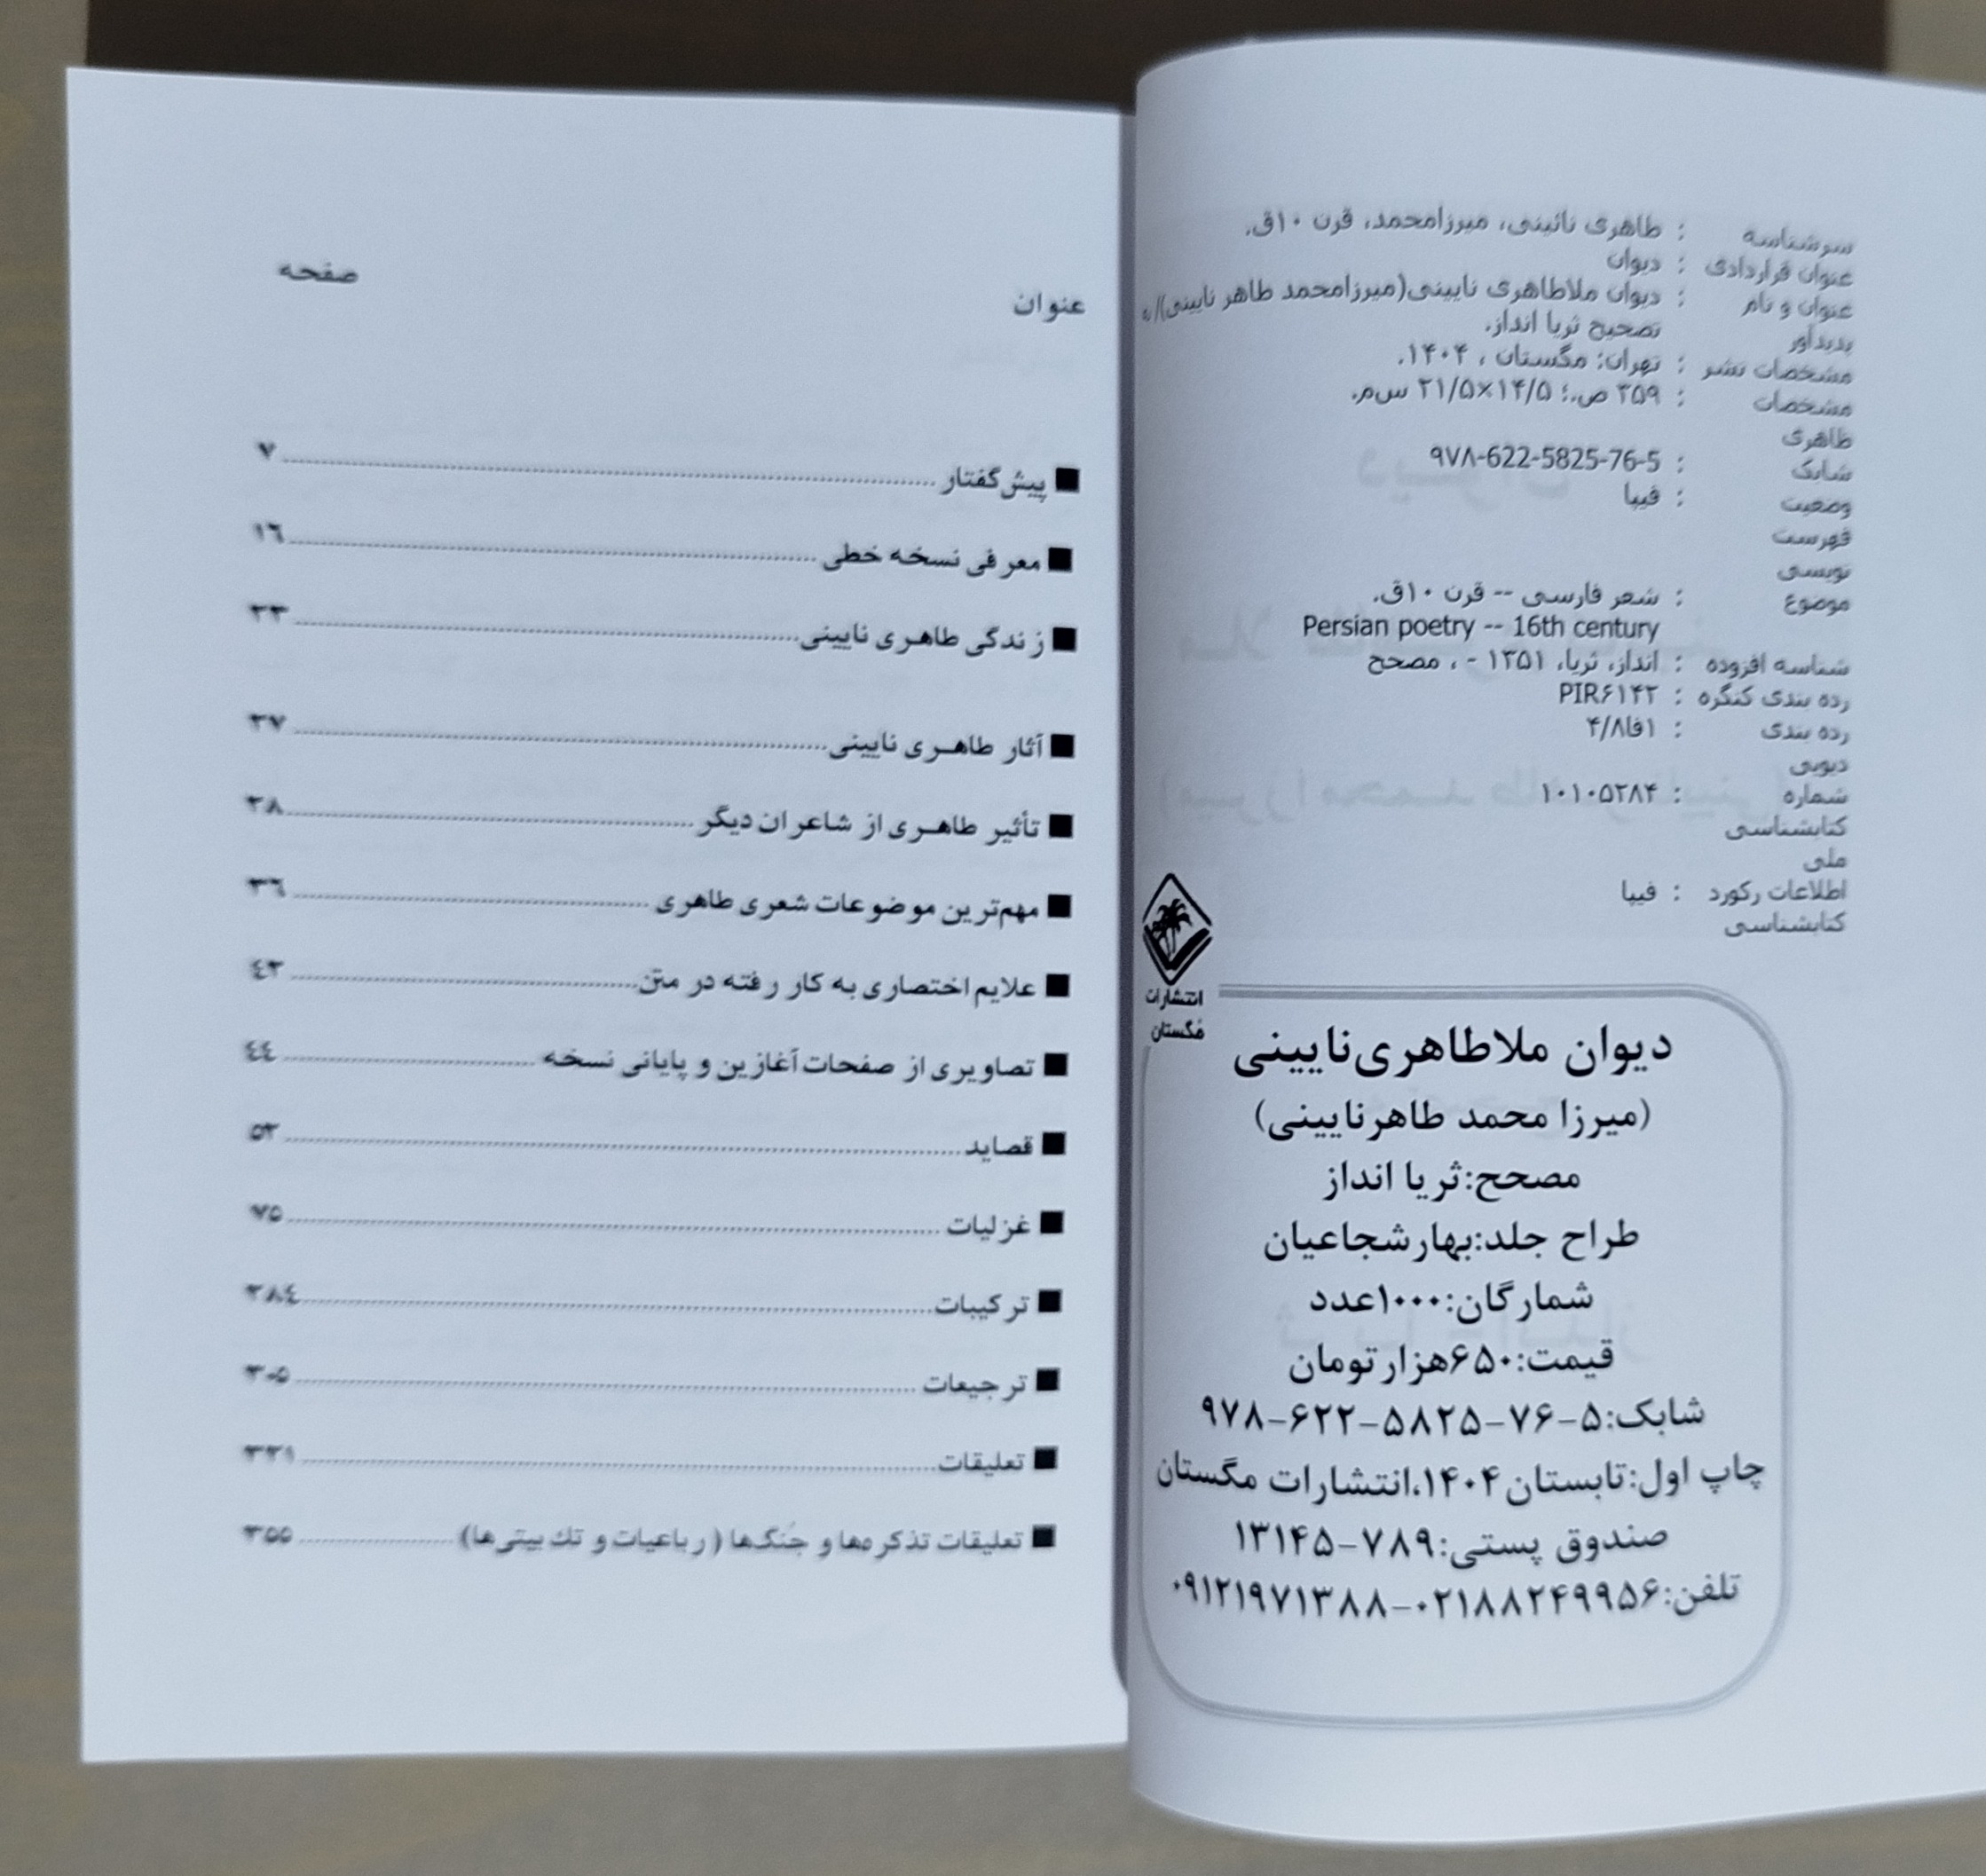 سرشناسه : طاهری نائینی، میرزامحمد، قرن ۱۰ق.
عنوان قراردادی : دیوان
عنوان و نام پدیدآور : دیوان ملاطاهری نایینی(میرزامحمد طاهر نایینی)/
تصحیح ثریا انداز.
مشخصات نشر : تهران: مگستان ، ۱۴۰۴.
مشخصات ظاهری : ۳۵۹ ص.؛ ۱۴/۵×۲۱/۵ س‌م.
شابک : ۹۷۸-622-5825-76-5
وضعیت فهرست نویسی : فیپا
موضوع : شعر فارسی -- قرن ۱۰ق.
Persian poetry -- 16th century
شناسه افزوده : انداز، ثریا، ۱۳۵۱ - ، مصحح
رده بندی کنگره : PIR۶۱۴۲
رده بندی دیویی : ۸فا۱/۴
شماره کتابشناسی ملی : ۱۰۱۰۵۲۸۴
اطلاعات رکورد کتابشناسی : فیپا
انتشارات
مگستان
دیوان ملاطاهری‌نایینی
(میرزا محمد طاهرنایینی)
مصحح:ثریا انداز
طراح جلد:بهارشجاعیان
شمارگان:۱۰۰۰عدد
قیمت:۶۵۰هزارتومان
شابک:۵-۷۶-۵۸۲۵-۶۲۲-۹۷۸
چاپ اول:تابستان۱۴۰۴،انتشارات مگستان
صندوق پستی:۷۸۹-۱۳۱۴۵
تلفن:۰۲۱۸۸۲۴۹۹۵۶-۰۹۱۲۱۹۷۱۳۸۸
عنوان صفحه
■ پیش‌گفتار ۷
■ معرفی نسخه خطی ۱۶
■ زندگی طاهری نایینی
■ آثار طاهری نایینی
■ تأثیر طاهری از شاعران دیگر
■ مهم‌ترین موضوعات شعری طاهری ۳۶
■ علایم اختصاری به کار رفته در متن ۴۳
■ تصاویری از صفحات آغازین و پایانی نسخه ۴۴
■ قصاید ۵۳
■ غزلیات ۷۵
■ ترکیبات ۲۸۴
■ ترجیعات ۳۰۵
■ تعلیقات
■ تعلیقات تذکره‌ها و جُنگ‌ها (رباعیات و تك بیتی‌ها) ۳۵۵